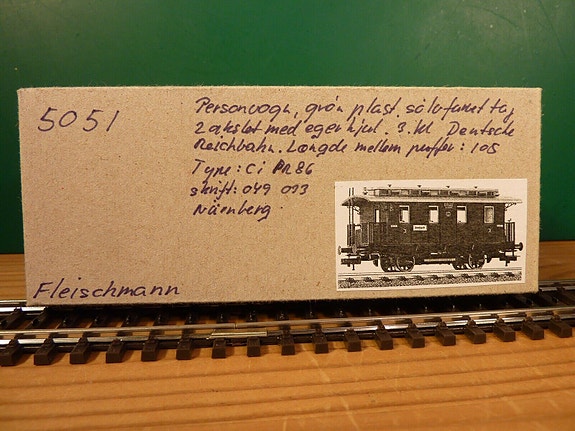 5051
Personvogn, grøn plast, sølvfarvet tag,
2 akslet med egerhjul. 3. kl Deutsche
Reichbahn. Længde mellem puffer: 105
Type: Ci PR 86
skrift: 049 013
Nürnberg
Fleischmann